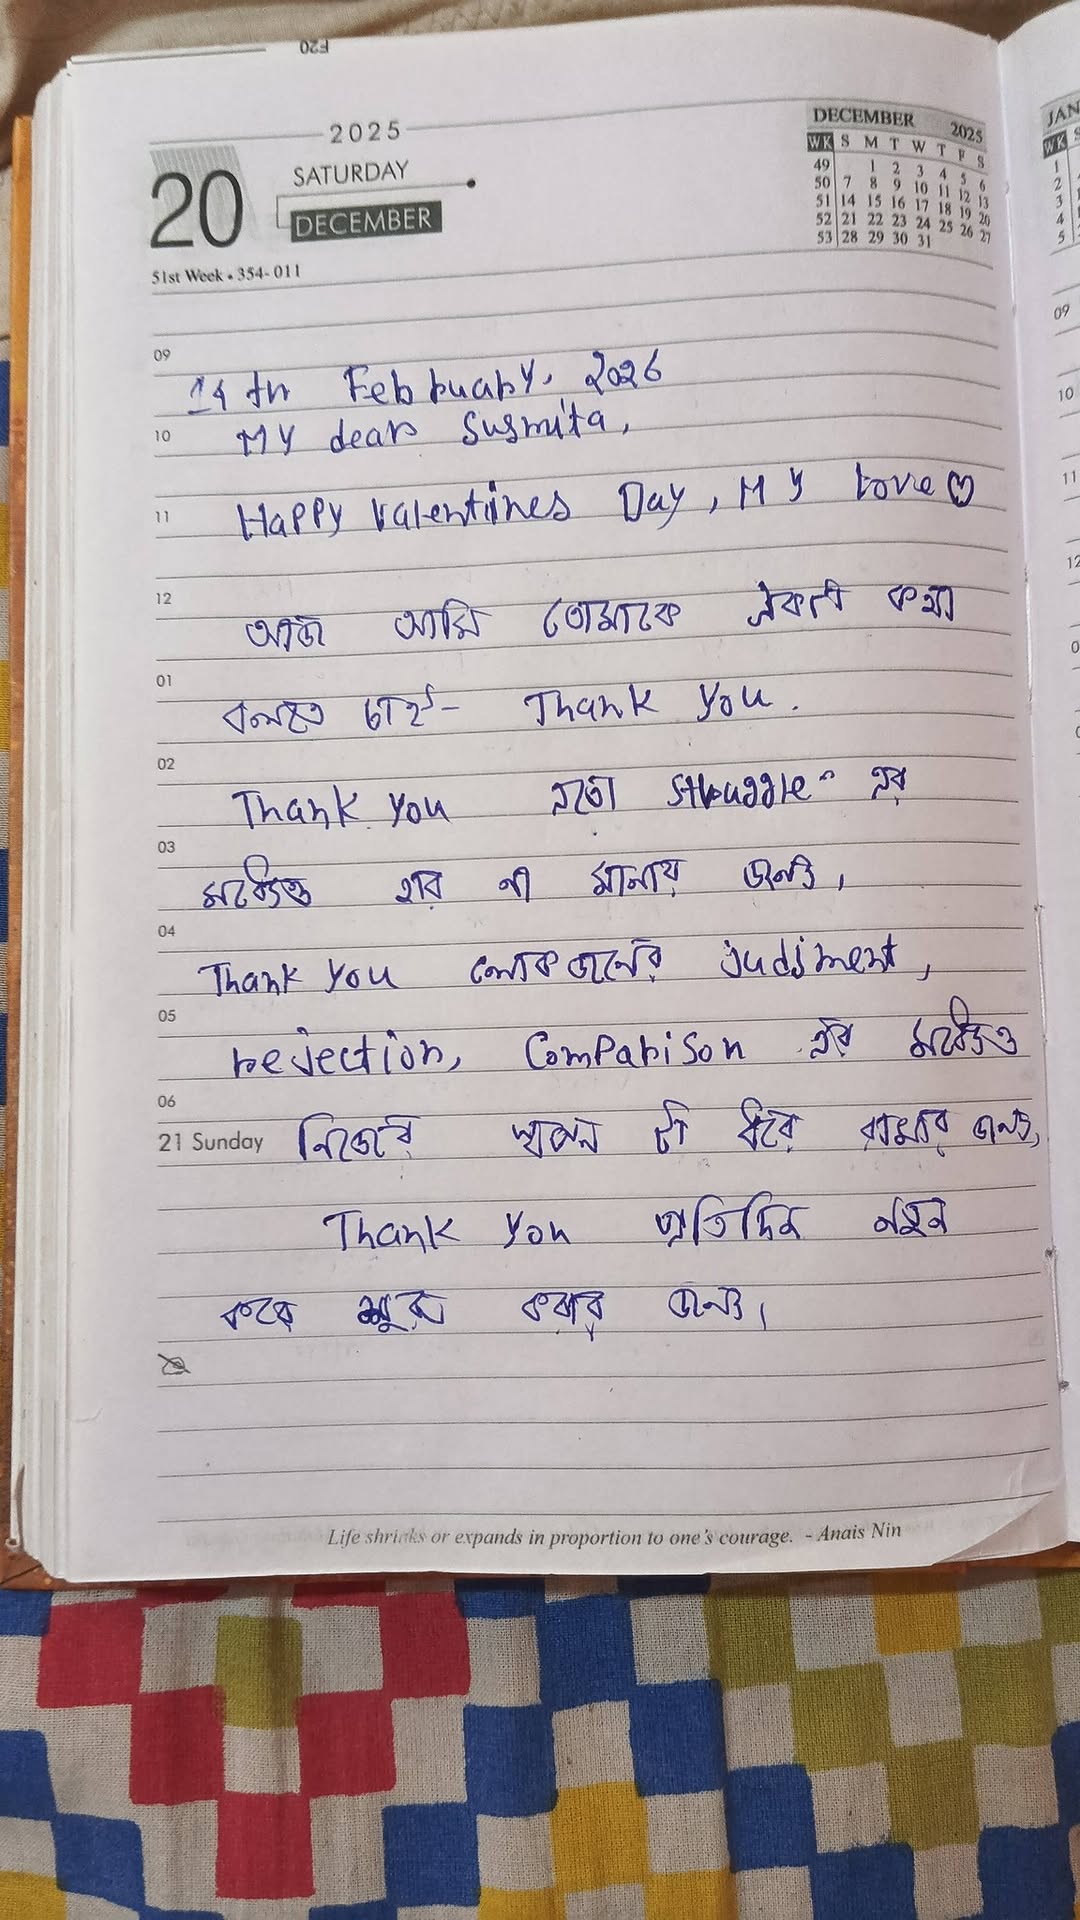 F20
2025
20 SATURDAY
DECEMBER
51st Week • 354-011
DECEMBER 2025
WK S M T W T F S
49 1 2 3 4 5 6
50 7 8 9 10 11 12 13
51 14 15 16 17 18 19 20
52 21 22 23 24 25 26 27
53 28 29 30 31
JAN
WK S
1
2
3
4
5
09
14 th February, 2026
10 My dear Susmita,
11 Happy Valentines Day, My Love ♡
12 আজ আমি তোমাকে একটা কথা
01 বলতে চাই - Thank you.
02
Thank you এতো struggle এর
03
মধ্যেও হার না মানার জন্য,
04
Thank you লোকজনের judjment,
05
rejection, Comparison এর মধ্যেও
06
21 Sunday নিজের স্বপ্ন টা ধরে রাখার জন্য,
Thank you প্রতিদিন নতুন
করে শুরু করার জন্য।
Life shrinks or expands in proportion to one's courage. - Anais Nin
09
10
11
12